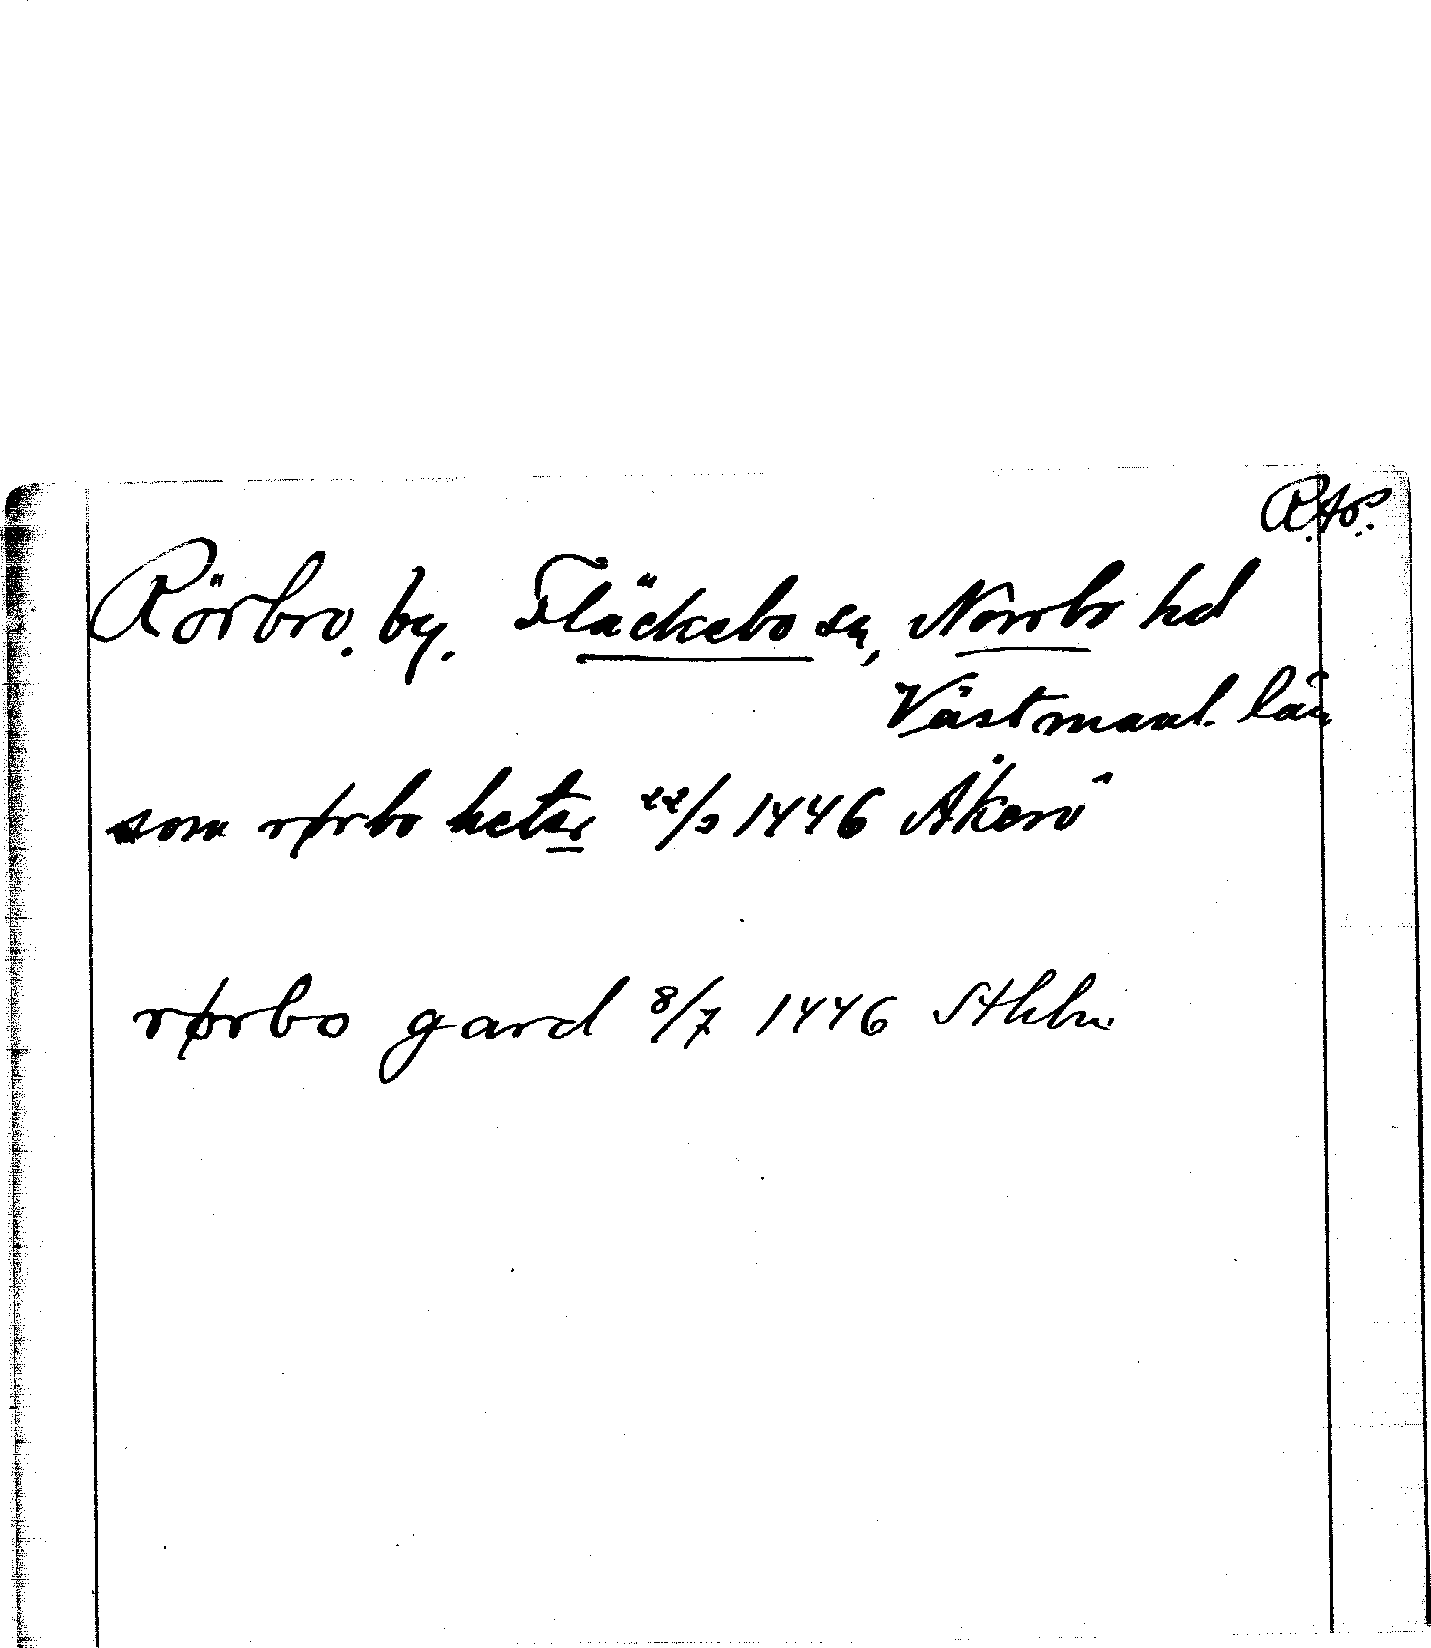 R.Ap.
Rörbro. by. Fläckebo sn, Norrbo hd
Västmanl. län
som rørbo heter 22/2 1446 Åkerö
rørbo gard 8/7 1446 Sthlm